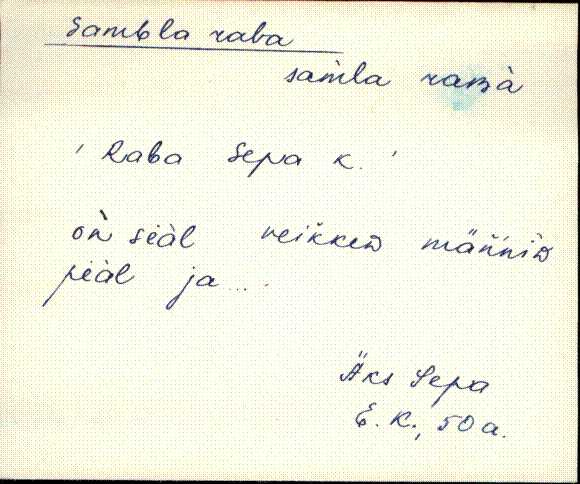 Sambla raba
sam̀la raʙà
' Raba Sepa k. '
oǹ siàl veikkeᴅ männiᴅ
piàl ja ....
Äks Sepa
E. K., 50 a.